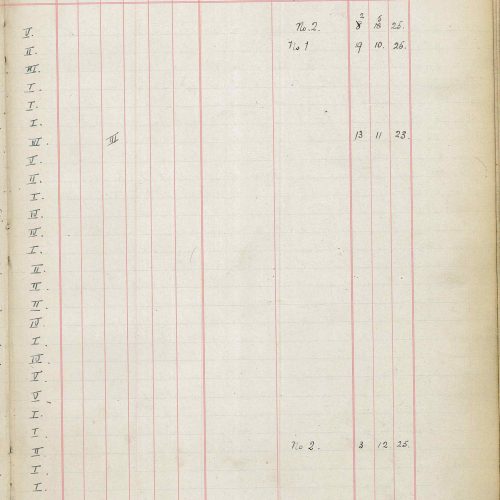 V. No. 2. 8 2 18 5 25.
II. No 1 9 10. 25.
III.
I.
I.
I.
VI. III 13 11 23.
V.
II.
I.
IV.
IV.
I.
II.
II.
II.
IV.
I.
IV.
V.
V.
I.
I.
II No 2. 3 12 25.
I.
I.